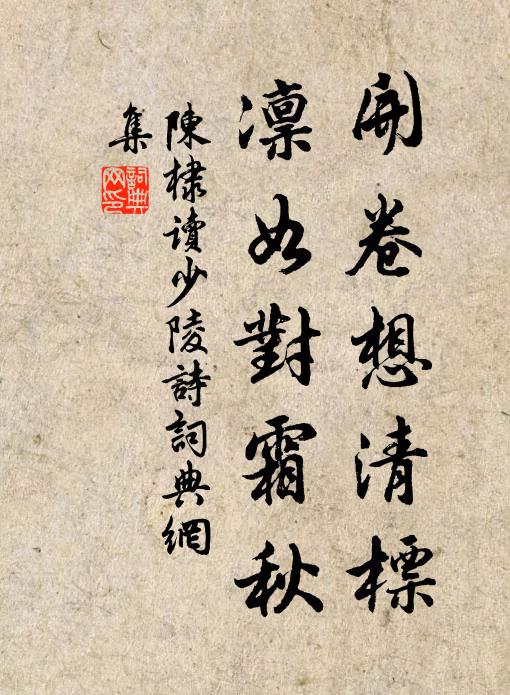 開卷想清標
凛如對霜秋
陳棣讀少陵詩詞典網
集
詞典
网印